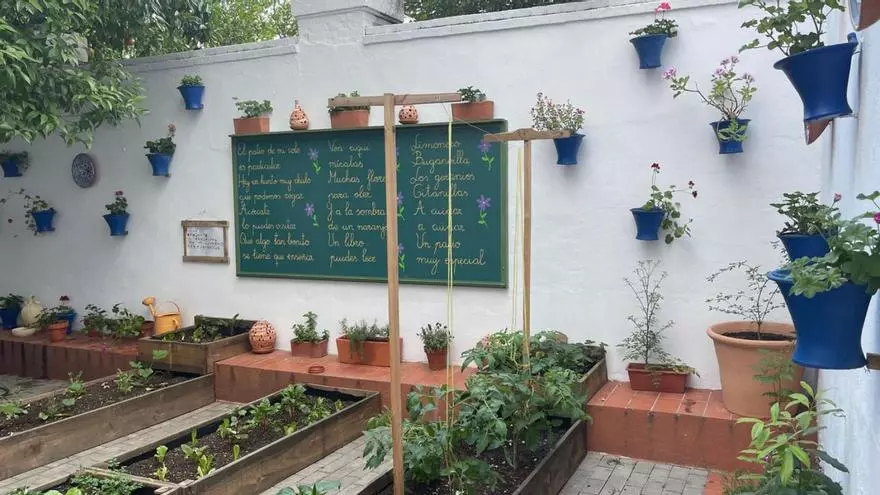 El patio de mi cole
es particular
Hay un huerto muy chulo
que podemos regar
Acércate
lo puedes visitar
Que algo tan bonito
se tiene que enseñar
Ven aquí
mézclate
Muchas flores
para oler
Y a la sombra
de un naranjo
Un libro
puedes leer
Limonero
Buganvilla
Los geranios
Gitanillas
A cuidar
a cuidar
Un patio
muy especial